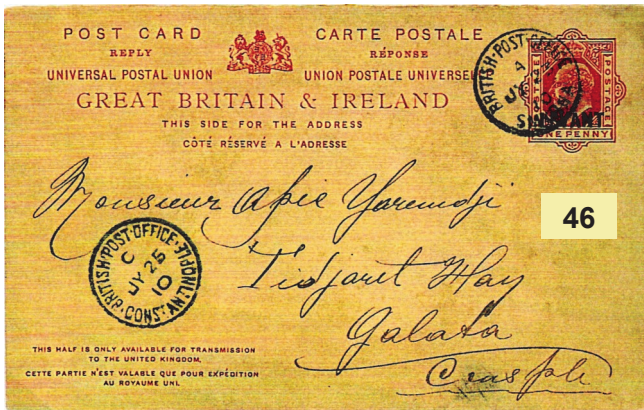 POST CARD
REPLY
UNIVERSAL POSTAL UNION
CARTE POSTALE
RÉPONSE
UNION POSTALE UNIVERSELLE
GREAT BRITAIN & IRELAND
THIS SIDE FOR THE ADDRESS
CÔTÉ RÉSERVÉ A L'ADRESSE
BRITISH·POST·OFFICE
A
JY
10
SMYRNA
POSTAGE
ONE PENNY
LEVANT
Monsieur
46
BRITISH·POST·OFFICE·CONSTANTINOPLE
C
JY 25
10
Tidjaret Hay
Galata
THIS HALF IS ONLY AVAILABLE FOR TRANSMISSION
TO THE UNITED KINGDOM.
CETTE PARTIE N'EST VALABLE QUE POUR EXPÉDITION
AU ROYAUME UNI.
Consple